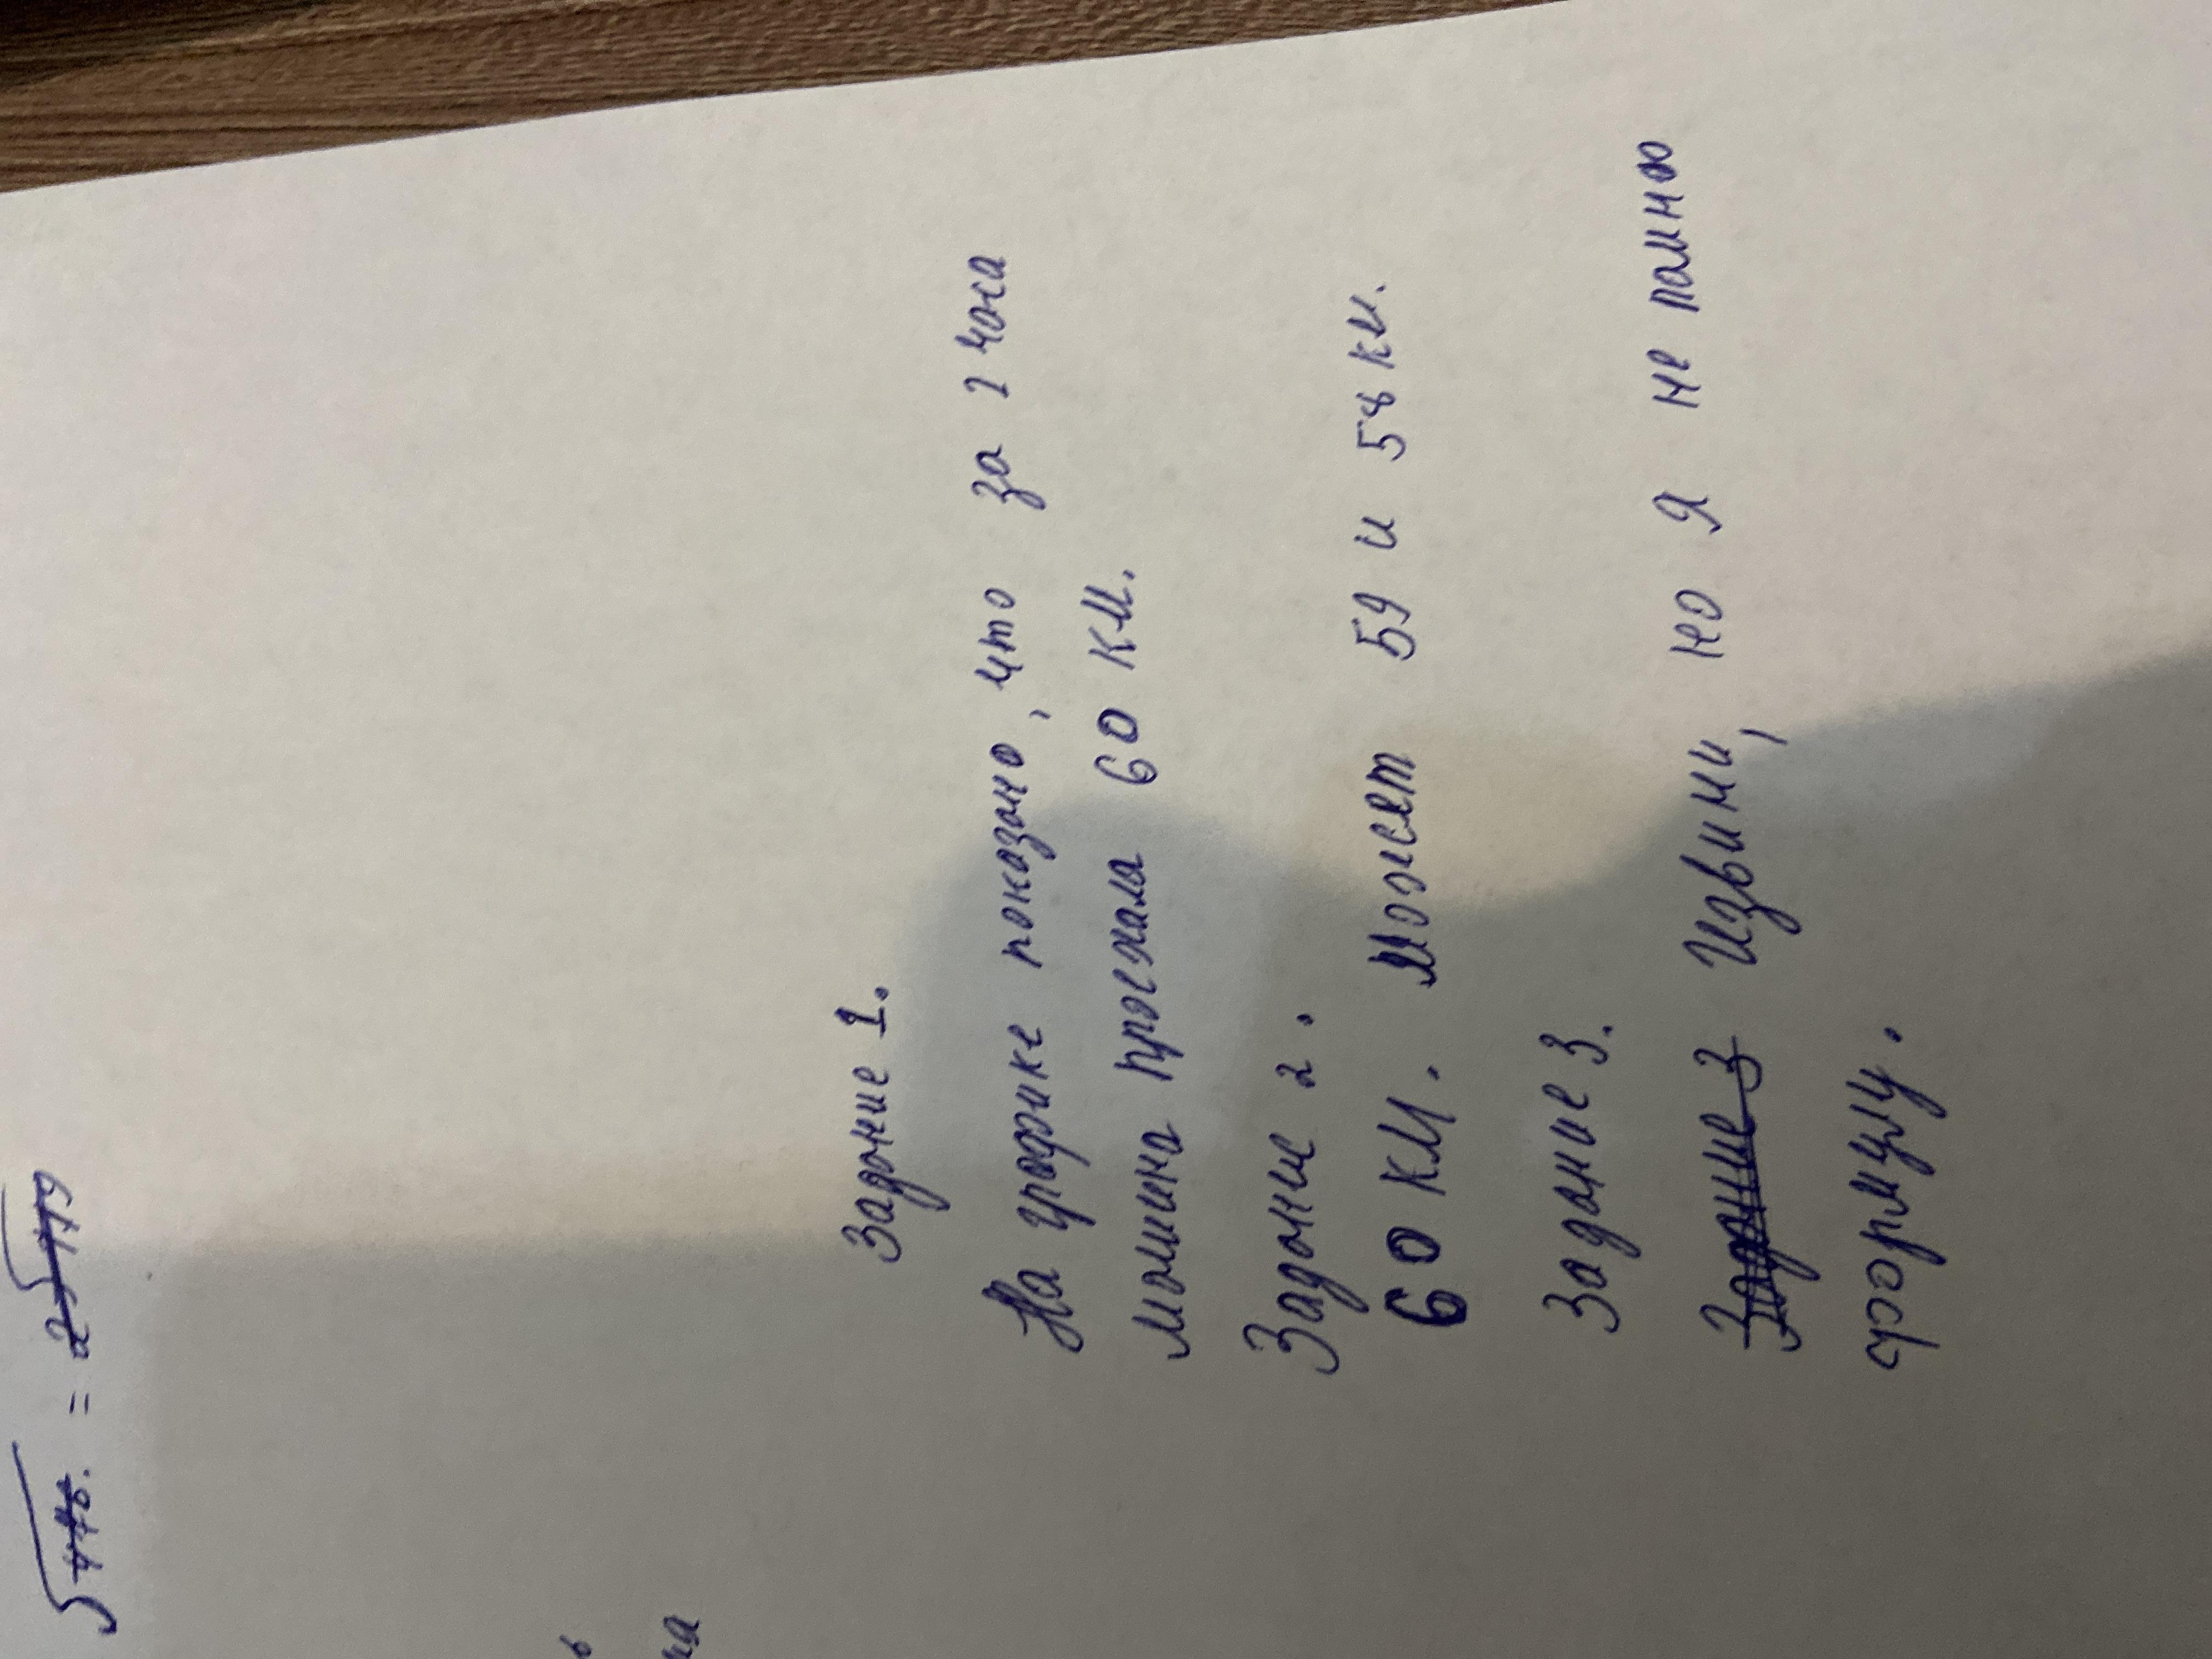 = 2√119
Задание 1.
На графике показано, что за 2 часа
машина проехала 60 км.
Задание 2.
60 км. Может 59 и 58 км.
Задание 3.
Задание 3 Извини, но я не помню
формулу.